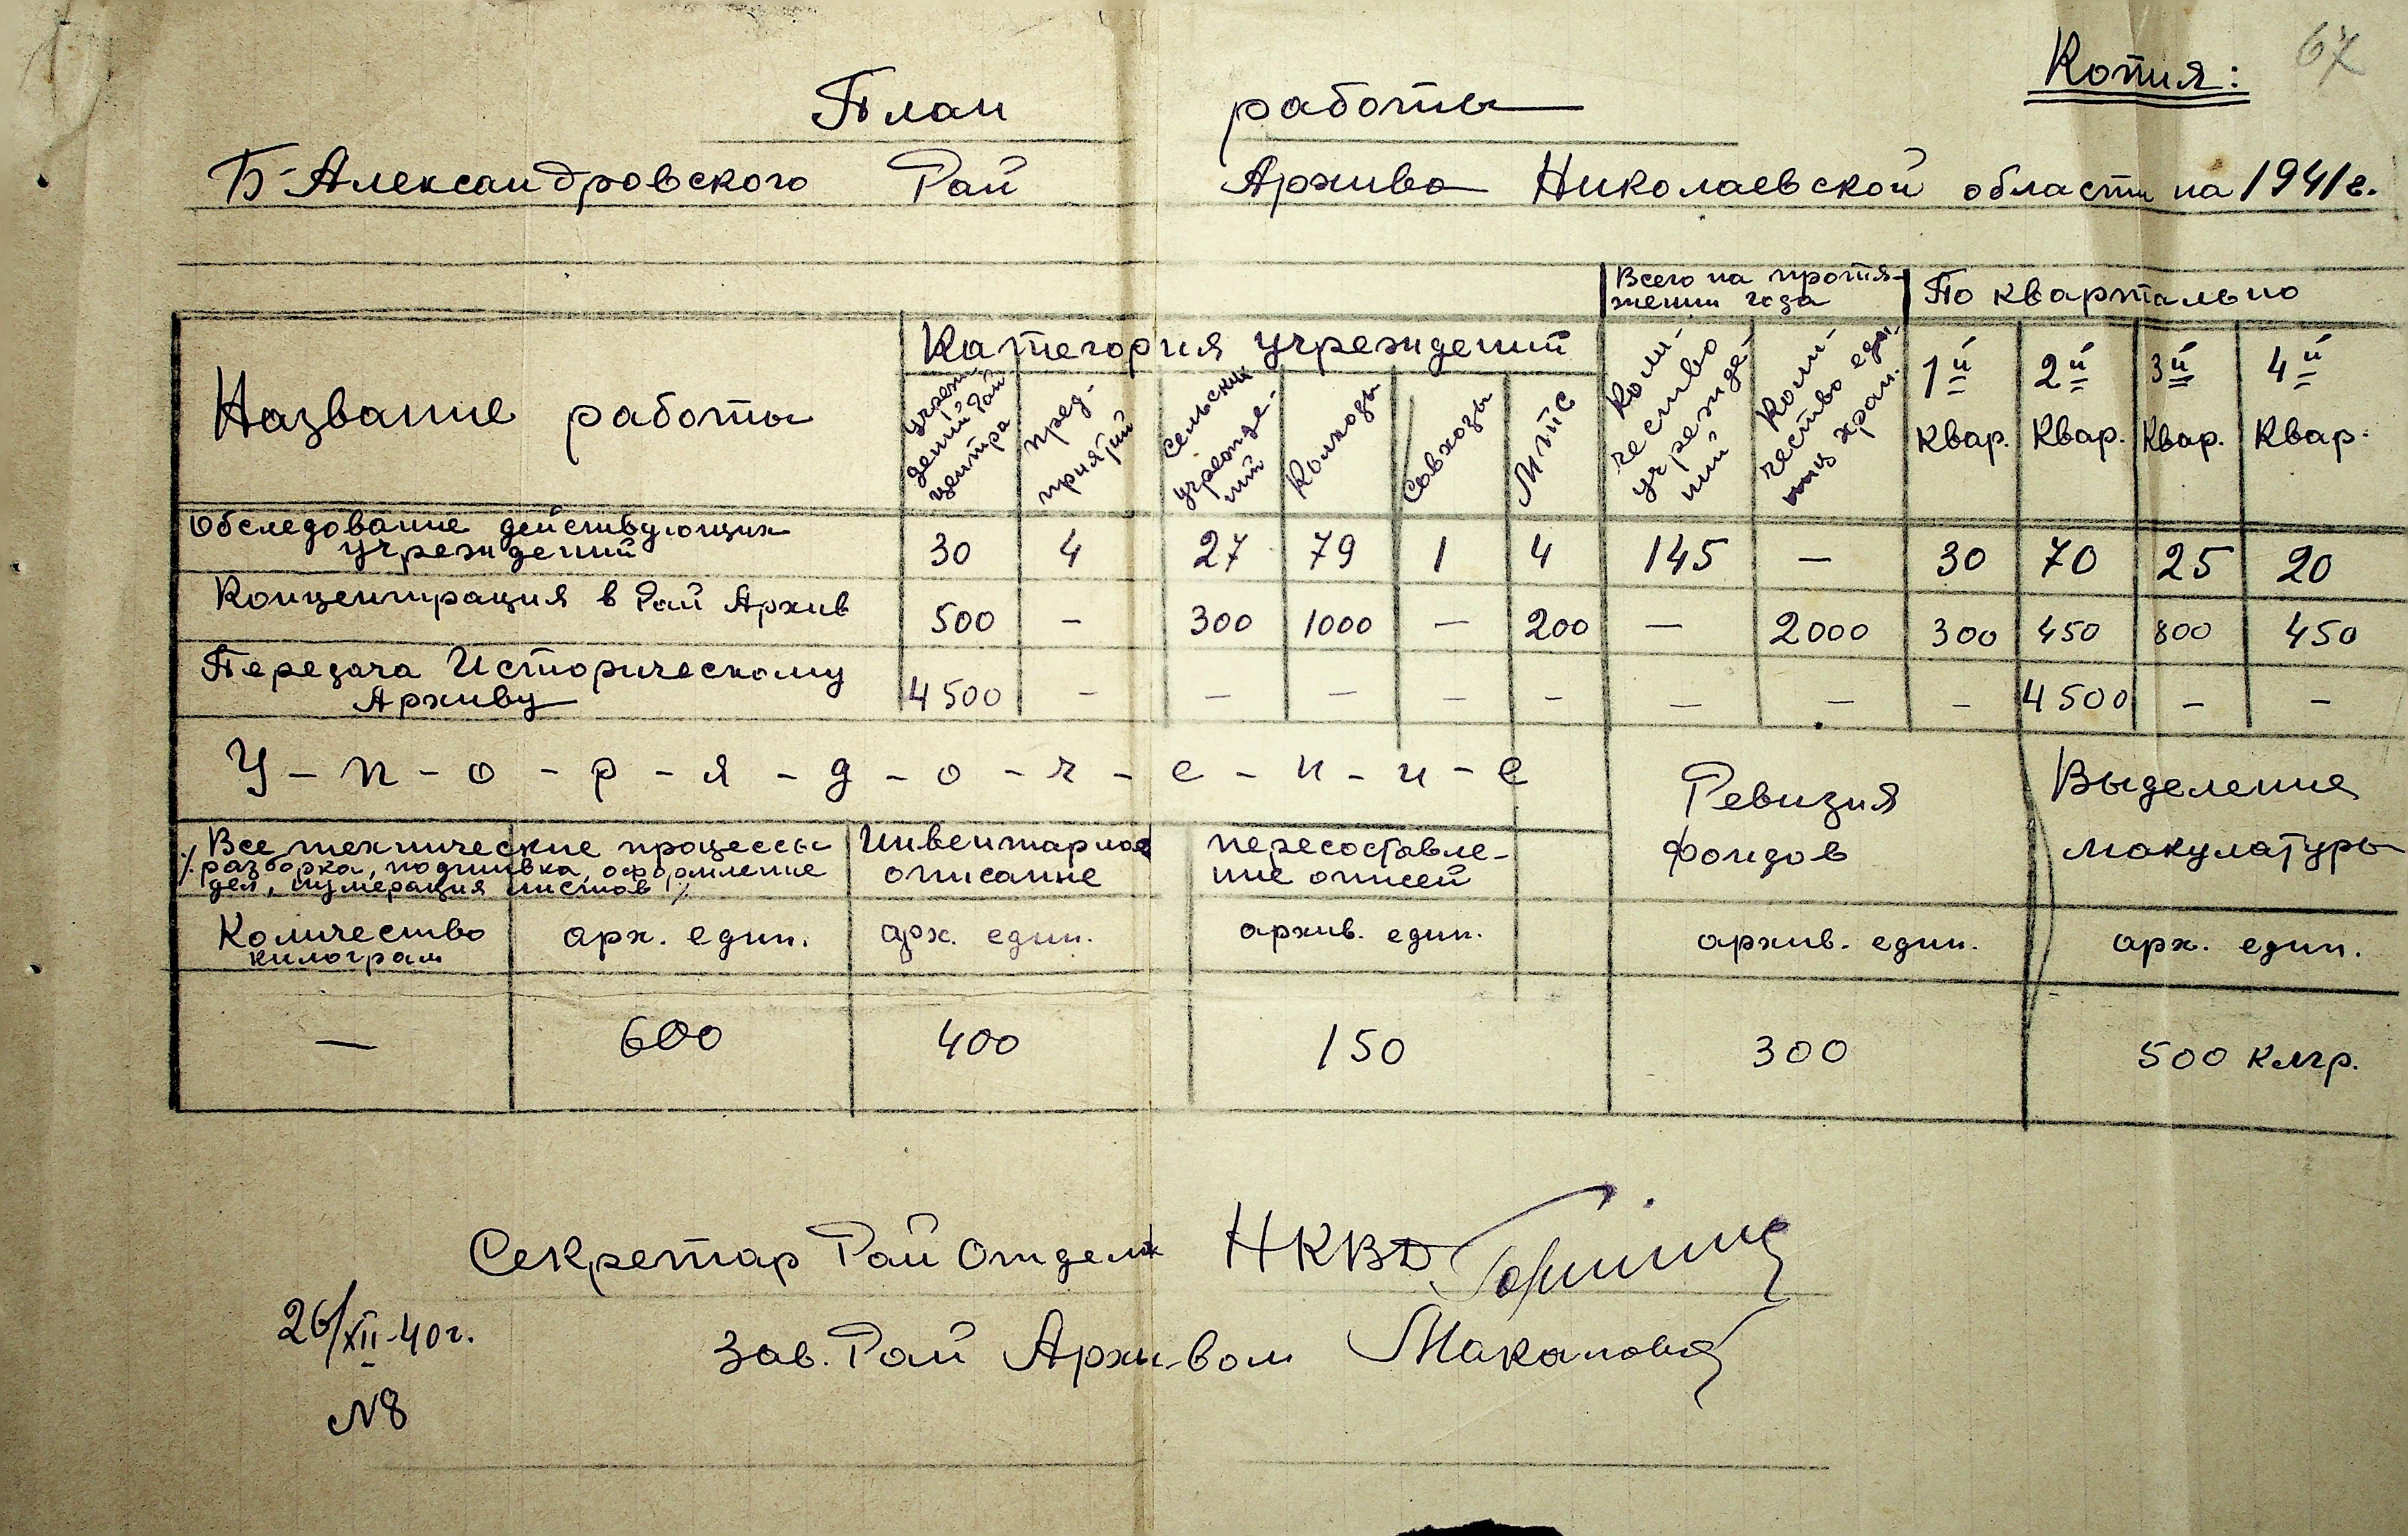 67
Копия:
План работы
Б-Александровского Рай Архива Николаевской области на 1941 г.
Всего на протя-
жении года
По квартально
Название работы
Категория учреждений
Учреж-
дений Рай
центра
Пред-
приятий
Сельских
учрежде-
ний
Колхозы
Совхозы
МТС
Коли-
чество
учрежде-
ний
Коли-
чество един-
ниц хран.
1й Квар.
2й Квар.
3й Квар.
4й Квар.
Обследование действующих
учреждений
30 4 27 79 1 4 145 — 30 70 25 20
Концентрация в Рай Архив
500 - 300 1000 — 200 — 2000 300 450 800 450
Передача Историческому
Архиву
4500 - - - - - - - - 4500 - -
У-п-о-р-я-д-о-ч-е-н-и-е
Ревизия
фондов
Выделение
макулатуры
Все технические процессы
/.разборка, подшивка, оформление
дел, нумерация листов/.
Инвентарное
описание
пересоставле-
ние описей
Количество
килограм
арх. един.
арх. един.
архив. един.
архив. един.
арх. един.
— 600 400 150 300 500 клгр.
Секретар Рай Отдела НКВД
26/XII-40г.
Зав. Рай Архивом Макалова
N8